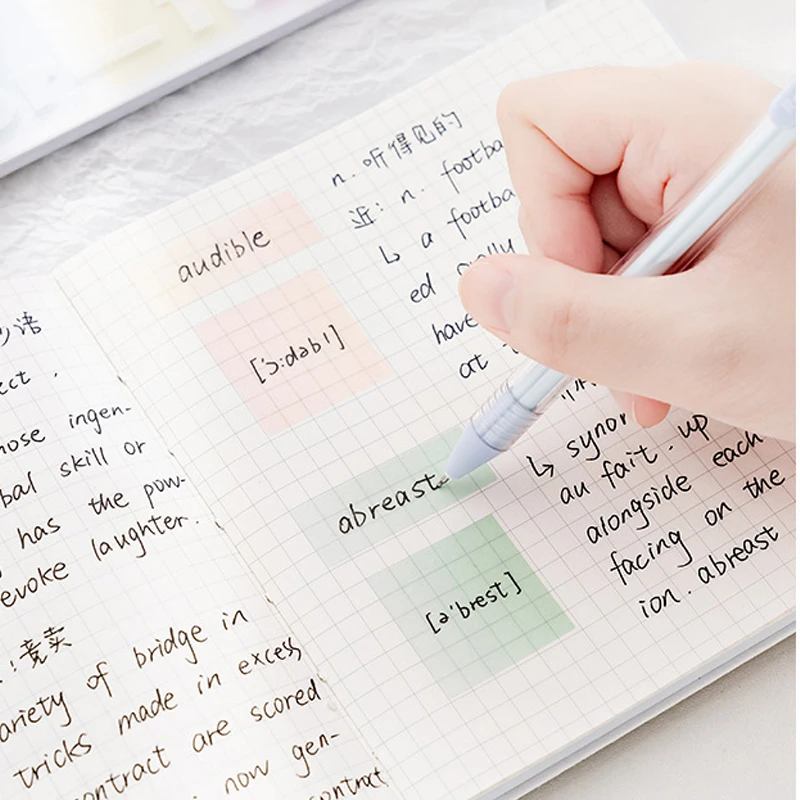 语
ect.
nose ingen-
bal skill or
has the pow-
evoke laughter.
: 竞卖
ariety of bridge in
tricks made in excess
contract are scored
: now gen-
contract
audible
['ɔ:dəbl]
n. 听得见的
近: n. footba
↳ a footba
ed orally
have
at
abreast
[ə'brest]
↳ synon
au fait. up
alongside each
facing on the
ion. abreast